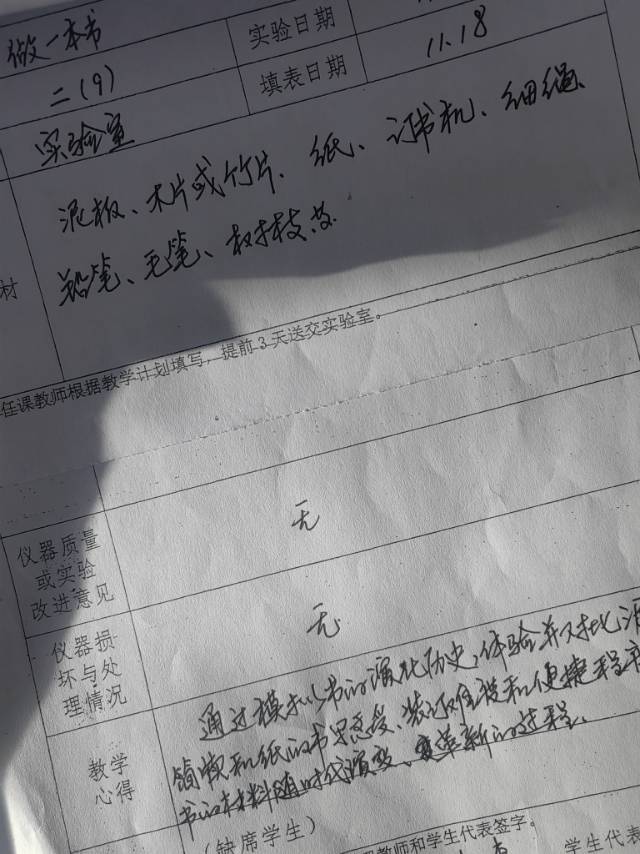 做一本书
实验日期
二(9)
填表日期
11.18
实验室
材
泥板、木片或竹片、纸、订书机、细绳、
铅笔、毛笔、树枝等
任课教师根据教学计划填写,提前3天送交实验室。
仪器质量
或实验
改进意见
无
仪器损
坏与处
理情况
无
教学
心得
通过模拟书的演化历史,体验并对比泥
简牍和纸的书写感受、装订难度和便捷程度
书的材料随时代演变、变革新的过程。
(缺席学生)
教师和学生代表签字。
学生代表